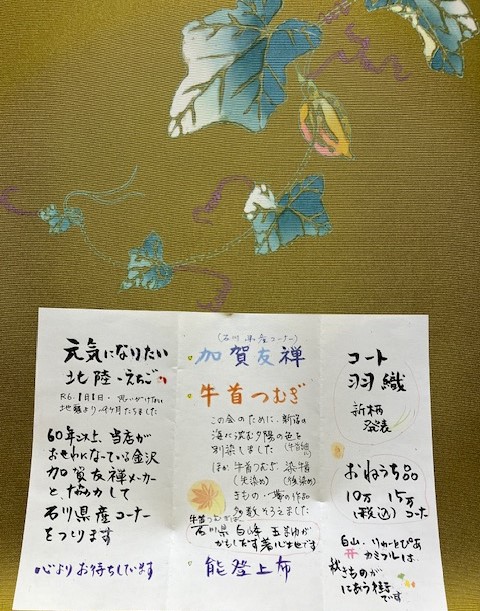 元気になりたい
北陸・えちご
R6.1月1日・思いがけない
地震より・9ヶ月たちました
60年以上、当店が
おせわになっている金沢
加賀友禅メーカー
と、なかして
石川県産コーナー
をつくります
心よりお待ちしています
(石川県産コーナー)
加賀友禅
牛首つむぎ
この会のために、新宿の
海に沈む夕陽の色を
別染しました
ほか 牛首つむぎ 染牛首
(先染め) (後染め)
きもの・帯の作品
多数そろえました
牛首つむぎは
石川県 白峰 玉まゆが
かもしだす着心地です
能登上布
コート
羽織
新柄
発表
おねうち品
10万 15万
(税込) コーナー
白山
カミフルは
秋きものが
にあう街
です